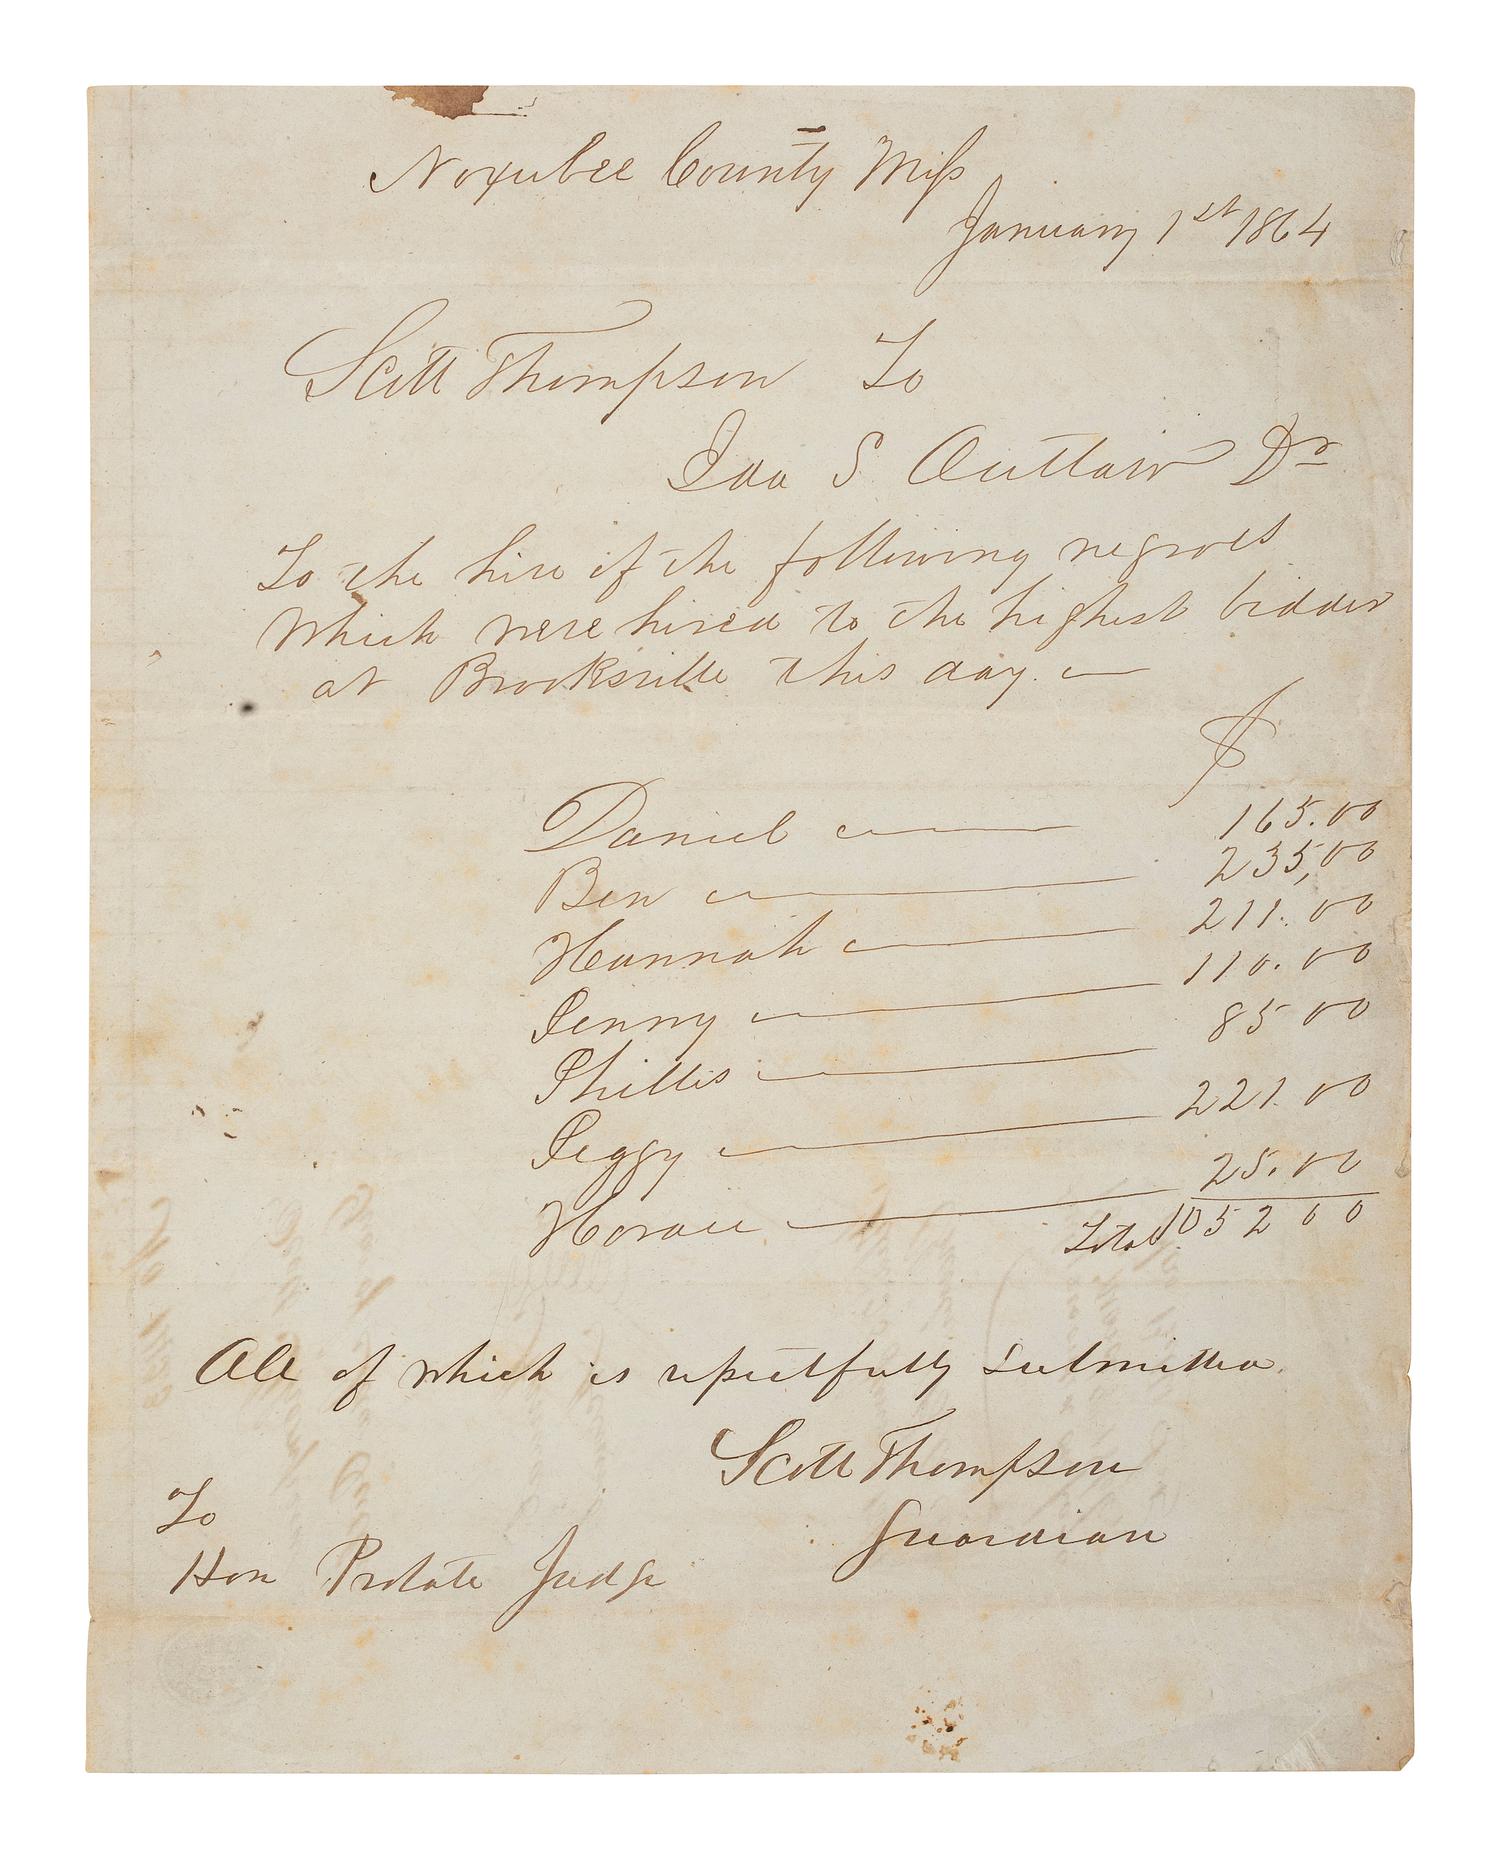 Noxubee County Miss
January 1st 1864
Scott Thompson To
Ida S Outlaw Dr
To the hire of the following negroes
Which were hired to the highest bidder
at Brooksville this day
$
Daniel 165.00
Ben 235,00
Hannah 211.00
Jenny 110.00
Phillis 85 00
Peggy 221.00
Horace 25.00
Total 1052 00
All of which is respectfully submitted
Scott Thompson
Guardian
To
Hon Probate Judge